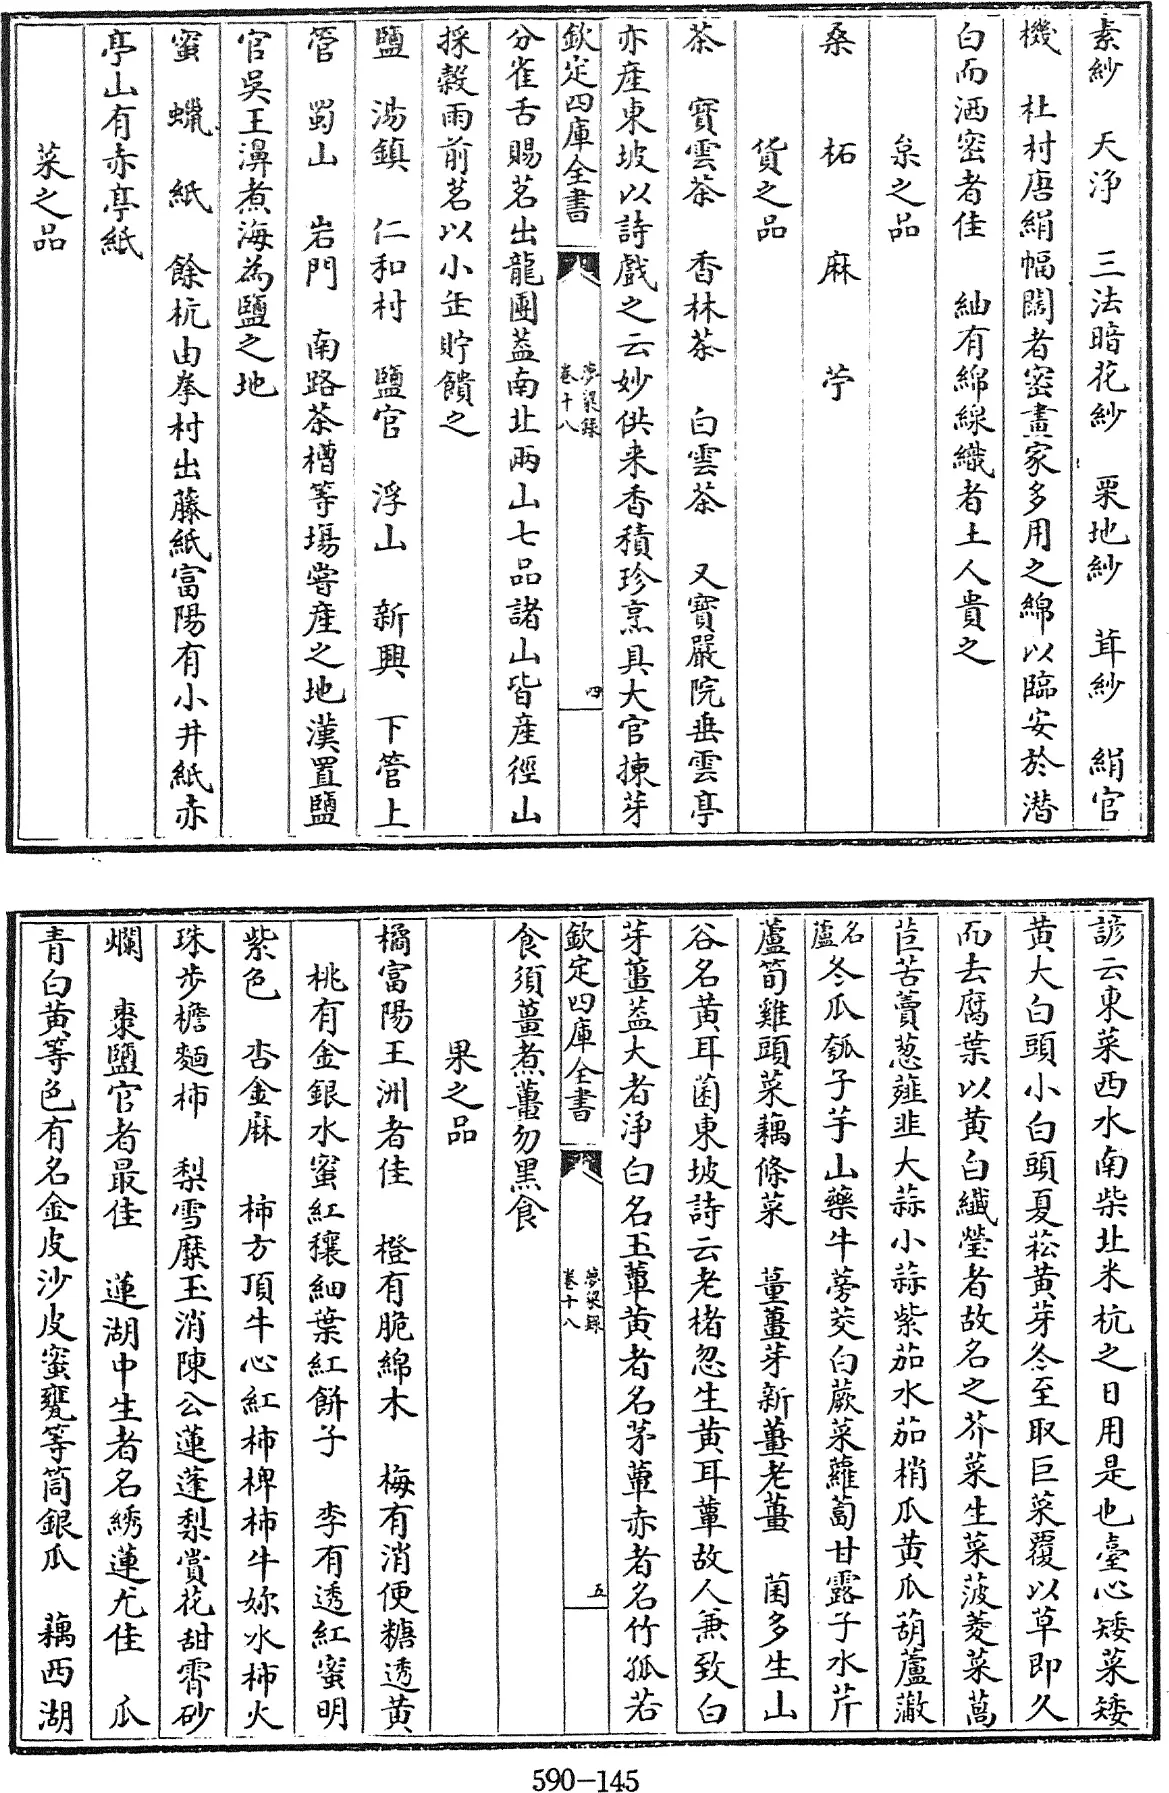 素紗　天淨　三法暗花紗　栗地紗　茸紗　絹官
機　杜村唐絹幅闊者密畫家多用之綿以臨安於潜
白而洒密者佳　紬有綿線織者土人貴之
枲之品
桑　柘　麻　苧
貨之品
茶　寳雲茶　香林茶　白雲茶　又寳嚴院垂雲亭
亦産東坡以詩戲之云妙供来香積珍烹具大官揀芽
欽定四庫全書　夢粱録　卷十八　四
分雀舌賜茗出龍團葢南北兩山七品諸山皆産徑山
採穀雨前茗以小缶貯饋之
鹽　湯鎮　仁和村　鹽官　浮山　新興　下管上
管　蜀山　岩門　南路茶槽等場甞産之地漢置鹽
官吳王濞煮海為鹽之地
蜜　蠟　紙　餘杭由拳村出藤紙富陽有小井紙赤
亭山有赤亭紙
菜之品
諺云東菜西水南柴北米杭之日用是也臺心矮菜矮
黄大白頭小白頭夏菘黄芽冬至取巨菜覆以草即久
而去腐葉以黄白纎瑩者故名之芥菜生菜菠薐菜萵
苣苦蕒葱薤韭大蒜小蒜紫茄水茄梢瓜黄瓜葫蘆瀲
名蘆冬瓜瓠子芋山藥牛蒡茭白蕨菜蘿蔔甘露子水芹
蘆筍雞頭菜藕條菜　薑薑芽新薑老薑　菌多生山
谷名黄耳菌東坡詩云老楮忽生黄耳蕈故人兼致白
芽薑葢大者淨白名玉蕈黄者名茅蕈赤者名竹菰若
欽定四庫全書　夢粱録　卷十八　五
食須薑煮薑勿黑食
果之品
橘富陽王洲者佳　橙有脆綿木　梅有消便糖透黄
桃有金銀水蜜紅穰細葉紅餅子　李有透紅蜜明
紫色　杏金麻　柿方頂牛心紅柿椑柿牛妳水柿火
珠步檐麵柿　梨雪糜玉消陳公蓮蓬梨賞花甜霄砂
爛　棗鹽官者最佳　蓮湖中生者名綉蓮尤佳　瓜
青白黄等色有名金皮沙皮蜜甕等筒銀瓜　藕西湖
590-145